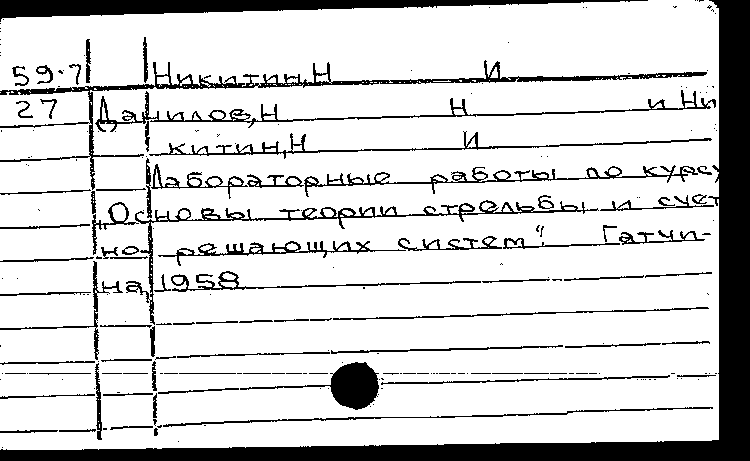 59.7 Никитин,Н И
27 Данилов,Н Н и Ни
китин,Н И
Лабораторные работы по курсу
„Основы теории стрельбы и счет
но-решающих систем". Гатчи-
на,1958